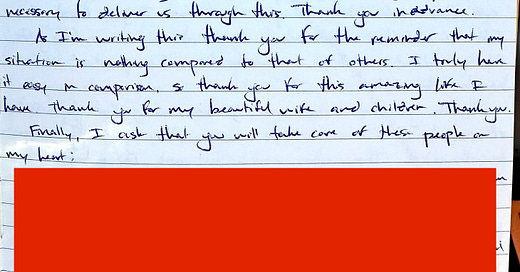 necessary to deliver us through this. Thank you in advance.
As I'm writing this thank you for the reminder that my
situation is nothing compared to that of others. I truly have
it easy in comparison. So thank you for this amazing life I
have. Thank you for my beautiful wife and children. Thank you.
Finally, I ask that you will take care of these people on
my heart: